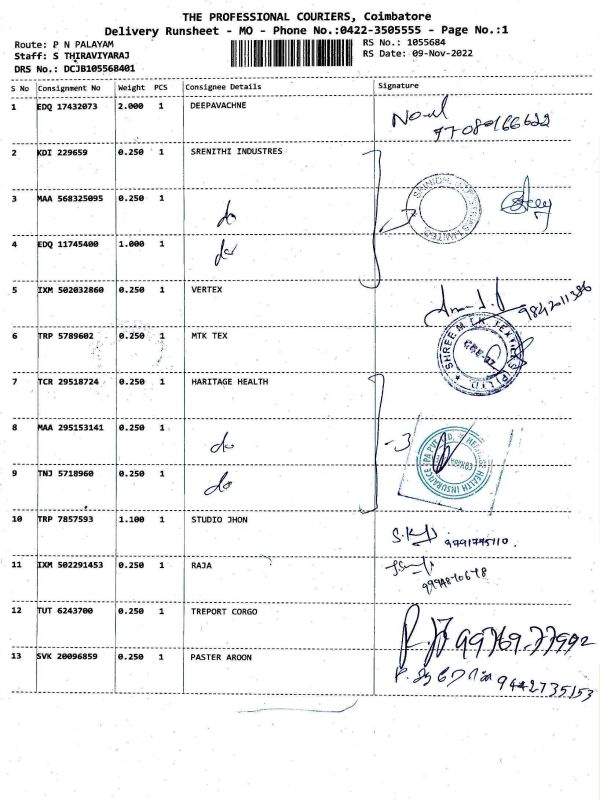 THE PROFESSIONAL COURIERS, Coimbatore
Delivery Runsheet - MO - Phone No.:0422-3505555 - Page No.:1
Route: P N PALAYAM
RS No.: 1055684
Staff: S THIRAVIYARAJ
RS Date: 09-Nov-2022
DRS No.: DCJB105568401
S No Consignment No Weight PCS Consignee Details Signature
1 EDQ 17432073 2.000 1 DEEPAVACHNE
2 KDI 229659 0.250 1 SRENITHI INDUSTRES
3 MAA 568325095 0.250 1 do
4 EDQ 11745400 1.000 1 do
5 IXM 502032860 0.250 1 VERTEX
9842011386
6 TRP 5789602 0.250 1 MTK TEX
SHREE M.T.K. TEXTILES (P) LTD
7 TCR 29518724 0.250 1 HARITAGE HEALTH
8 MAA 295153141 0.250 1 do
-3
HEALTH INSURANCE TPA PVT. LTD.
9 TNJ 5718960 0.250 1 do
10 TRP 7857593 1.100 1 STUDIO JHON
11 IXM 502291453 0.250 1 RAJA
12 TUT 6243700 0.250 1 TREPORT CORGO
13 SVK 20096859 0.250 1 PASTER AROON
9442735153